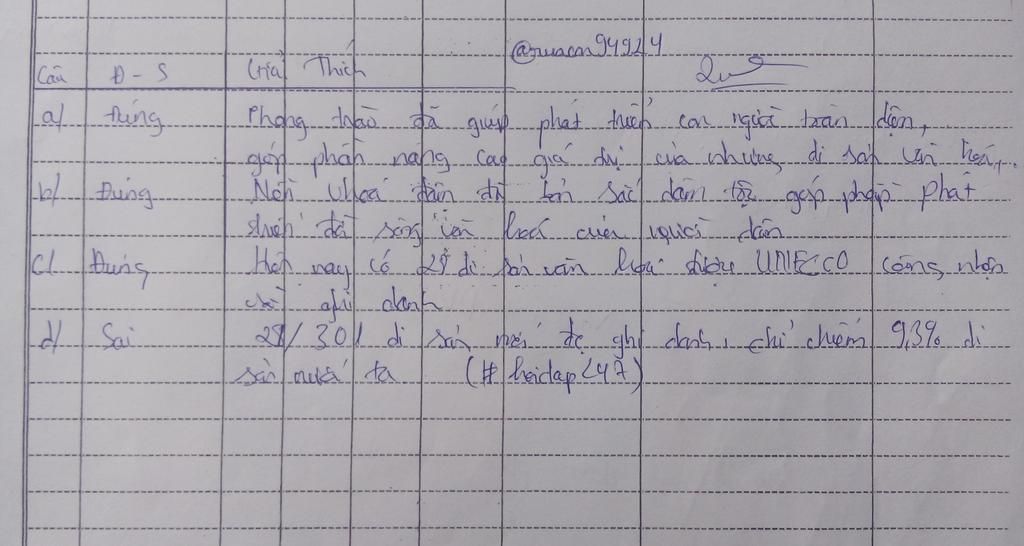 @ruacon94924
Câu Đ - S Giải Thích
a/ Đúng Phong trào đã giúp phát triển con người toàn diện,
góp phần nâng cao giá trị của những di sản văn hoá,
b/ Đúng Nền vhoá đậm đà bản sắc dân tộc góp phần phát
triển đời sống văn hoá của người dân
c/ Đúng Hiện nay có 28 di sản văn hoá được UNECCO công nhận
và ghi danh
d/ Sai 28/301 di sản mới đc ghi danh, chỉ chiếm 9,3% di
sản nước ta (#hoidap247)